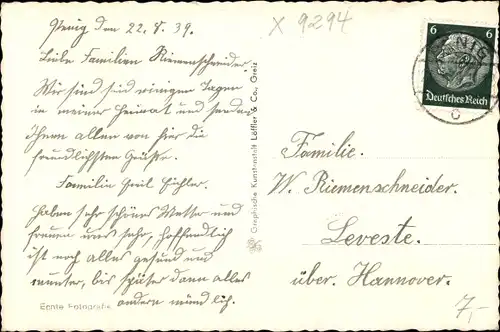 Penig den 22. 8. 39.
Liebe Familien Riemenschneider
Wir sind seit einigen Tagen
in meiner Heimat und senden
Ihnen allen von hier die
freundlichsten Grüße.
Familie Emil Eichler.
Haben sehr schönes Wetter und
freuen uns sehr, hoffentlich
ist noch alles gesund und
munter, bis später dann alles
andere mündlich.
Echte Fotografie
Graphische Kunstanstalt Löffler & Co., Greiz
X 9294
6 6
Deutsches Reich
PENIG
c
Familie.
W. Riemenschneider.
Leveste.
über. Hannover.
7,-